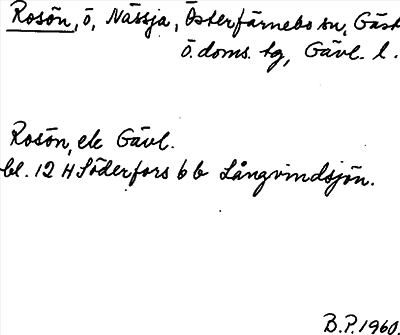 Rosön, ö, Nässja, Österfärnebo sn, Gäst
Ö. doms. tg, Gävl. l.
Rosön, ek Gävl.
bl. 12 H Söderfors 6 b Långvindsjön.
B.P. 1960.